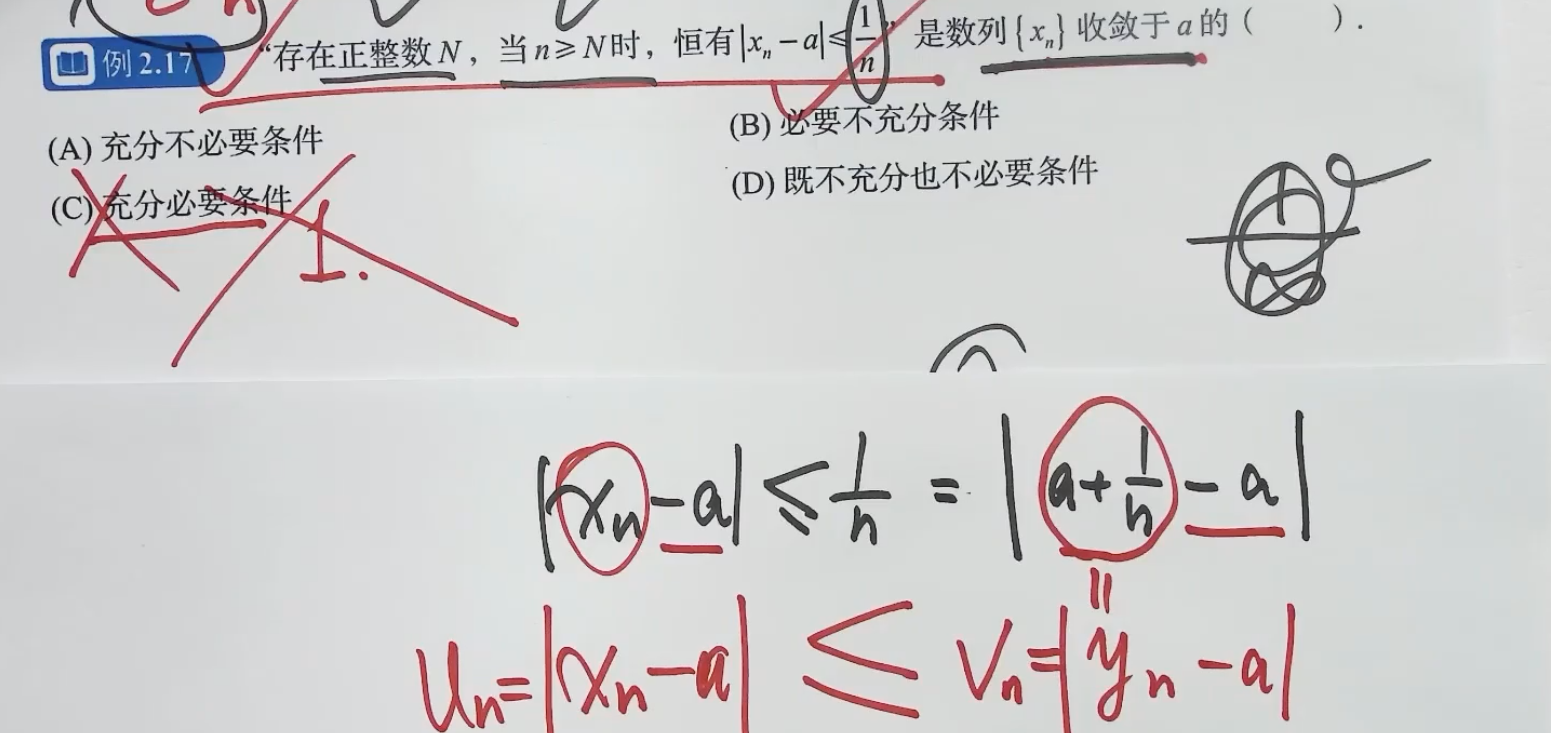 例 2.17 “存在正整数 N，当 n ≥ N 时，恒有 |xₙ − a| ≤ 1/n” 是数列 {xₙ} 收敛于 a 的（　　）.
(A) 充分不必要条件 (B) 必要不充分条件
(C) 充分必要条件 (D) 既不充分也不必要条件
1.
|xₙ − a| ≤ 1/n = |a + 1/n − a|
||
uₙ = |xₙ − a| ≤ vₙ = |yₙ − a|